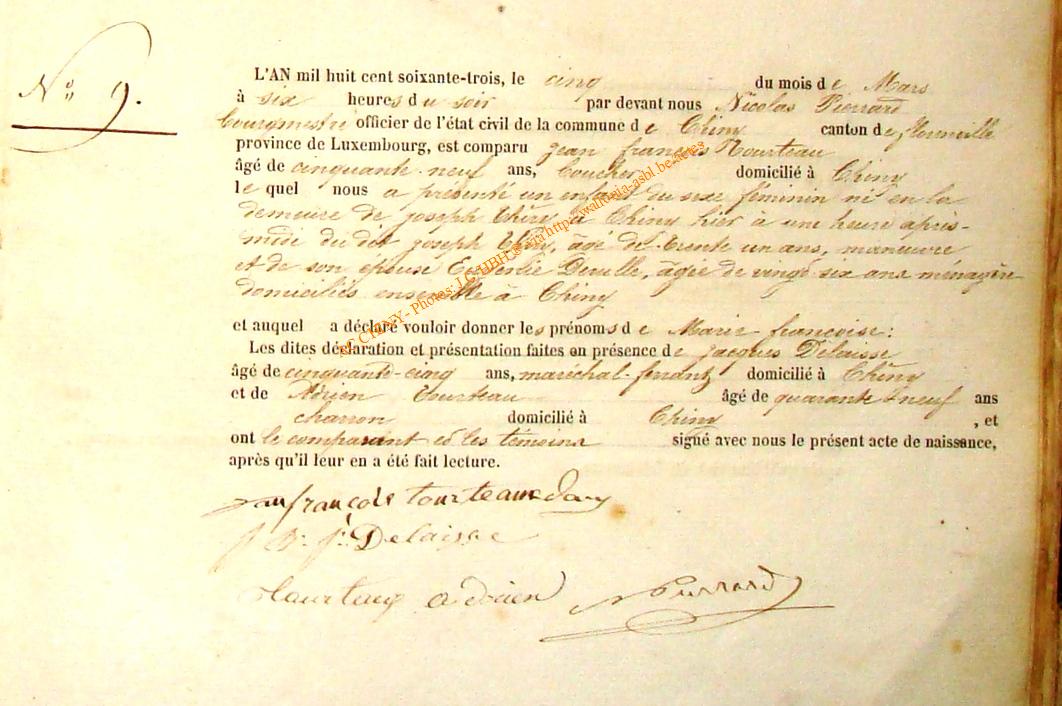 N° 9.
L'AN mil huit cent soixante-trois, le cinq du mois de Mars
à six heures du soir par devant nous Nicolas Pierrard
bourgmestre officier de l'état civil de la commune de Chiny canton de florenville
province de Luxembourg, est comparu jean françois Tourteau
âgé de cinquante-neuf ans, domicilié à Chiny
lequel nous a présenté un enfant du sexe féminin né en la
demeure de joseph Thiry à Chiny hier à une heure après-
midi du dit joseph Thiry, âgé de trente un ans, manœuvre
et de son épouse Deville, âgée de vingt six ans ménagère
domiciliés ensemble à Chiny
et auquel a déclaré vouloir donner les prénoms de Marie françoise:
Les dites déclaration et présentation faites en présence de jacques Delaisse
âgé de cinquante-cinq ans, maréchal-ferrant domicilié à Chiny
et de Adrien Tourteau âgé de quarante neuf ans
charron domicilié à Chiny , et
ont le comparant et les témoins signé avec nous le présent acte de naissance,
après qu'il leur en a été fait lecture.
jean françois tourteaux
Delaisse
tourteaux adrien N Pierrard
CHINY - Photos: J.C. HBH via http://wallonia-asbl.be/actes